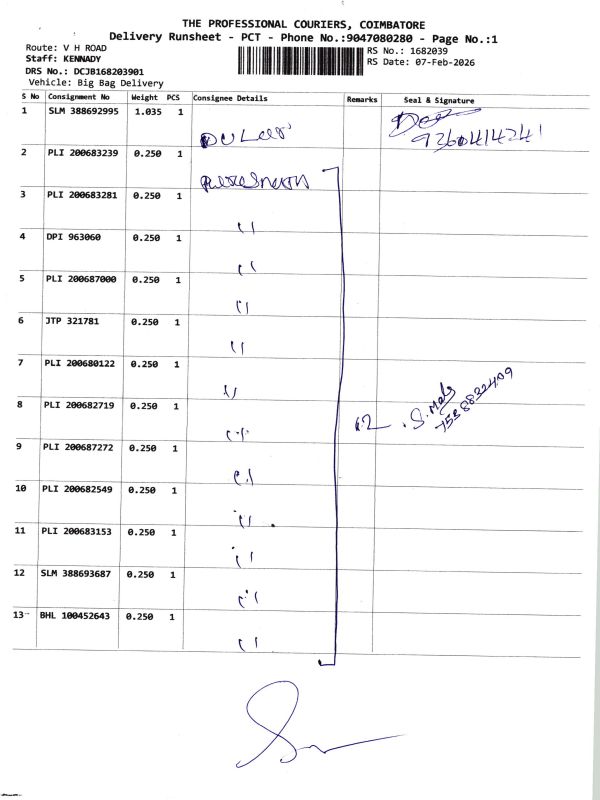 THE PROFESSIONAL COURIERS, COIMBATORE
Delivery Runsheet - PCT - Phone No.:9047080280 - Page No.:1
Route: V H ROAD
RS No.: 1682039
Staff: KENNADY
RS Date: 07-Feb-2026
DRS No.: DCJB168203901
Vehicle: Big Bag Delivery
S No Consignment No Weight PCS Consignee Details Remarks Seal & Signature
1 SLM 388692995 1.035 1
9360414241
2 PLI 200683239 0.250 1
3 PLI 200683281 0.250 1 "
4 DPI 963060 0.250 1 "
5 PLI 200687000 0.250 1 "
6 JTP 321781 0.250 1 "
7 PLI 200680122 0.250 1 "
8 PLI 200682719 0.250 1 " 12
9 PLI 200687272 0.250 1 "
10 PLI 200682549 0.250 1 "
11 PLI 200683153 0.250 1 "
12 SLM 388693687 0.250 1 "
13 BHL 100452643 0.250 1 "